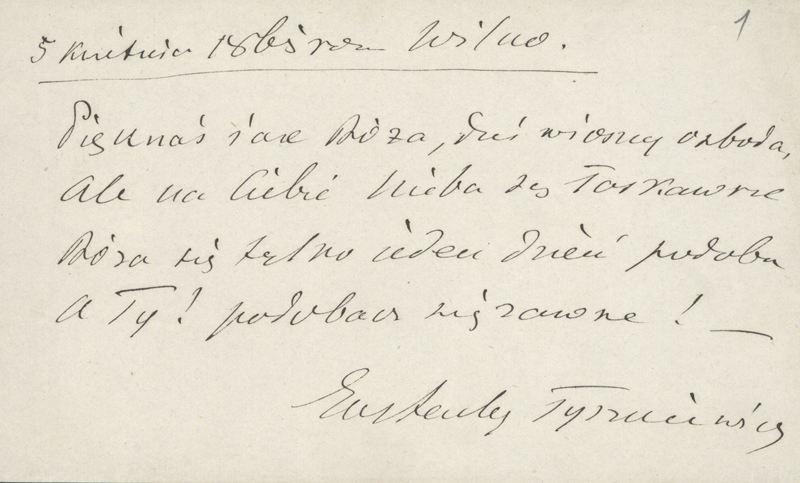 1
5 kwietnia 1865 rou Wilno.
Pięknaś jak Róza, dniś wiosny ozboda,
Ale na Ciebie Nieba są łaskawsze
Róza się tylko ieden dzień podoba
A Ty! podobasz się zawsze! —
Eustachy Tyszkiewicz